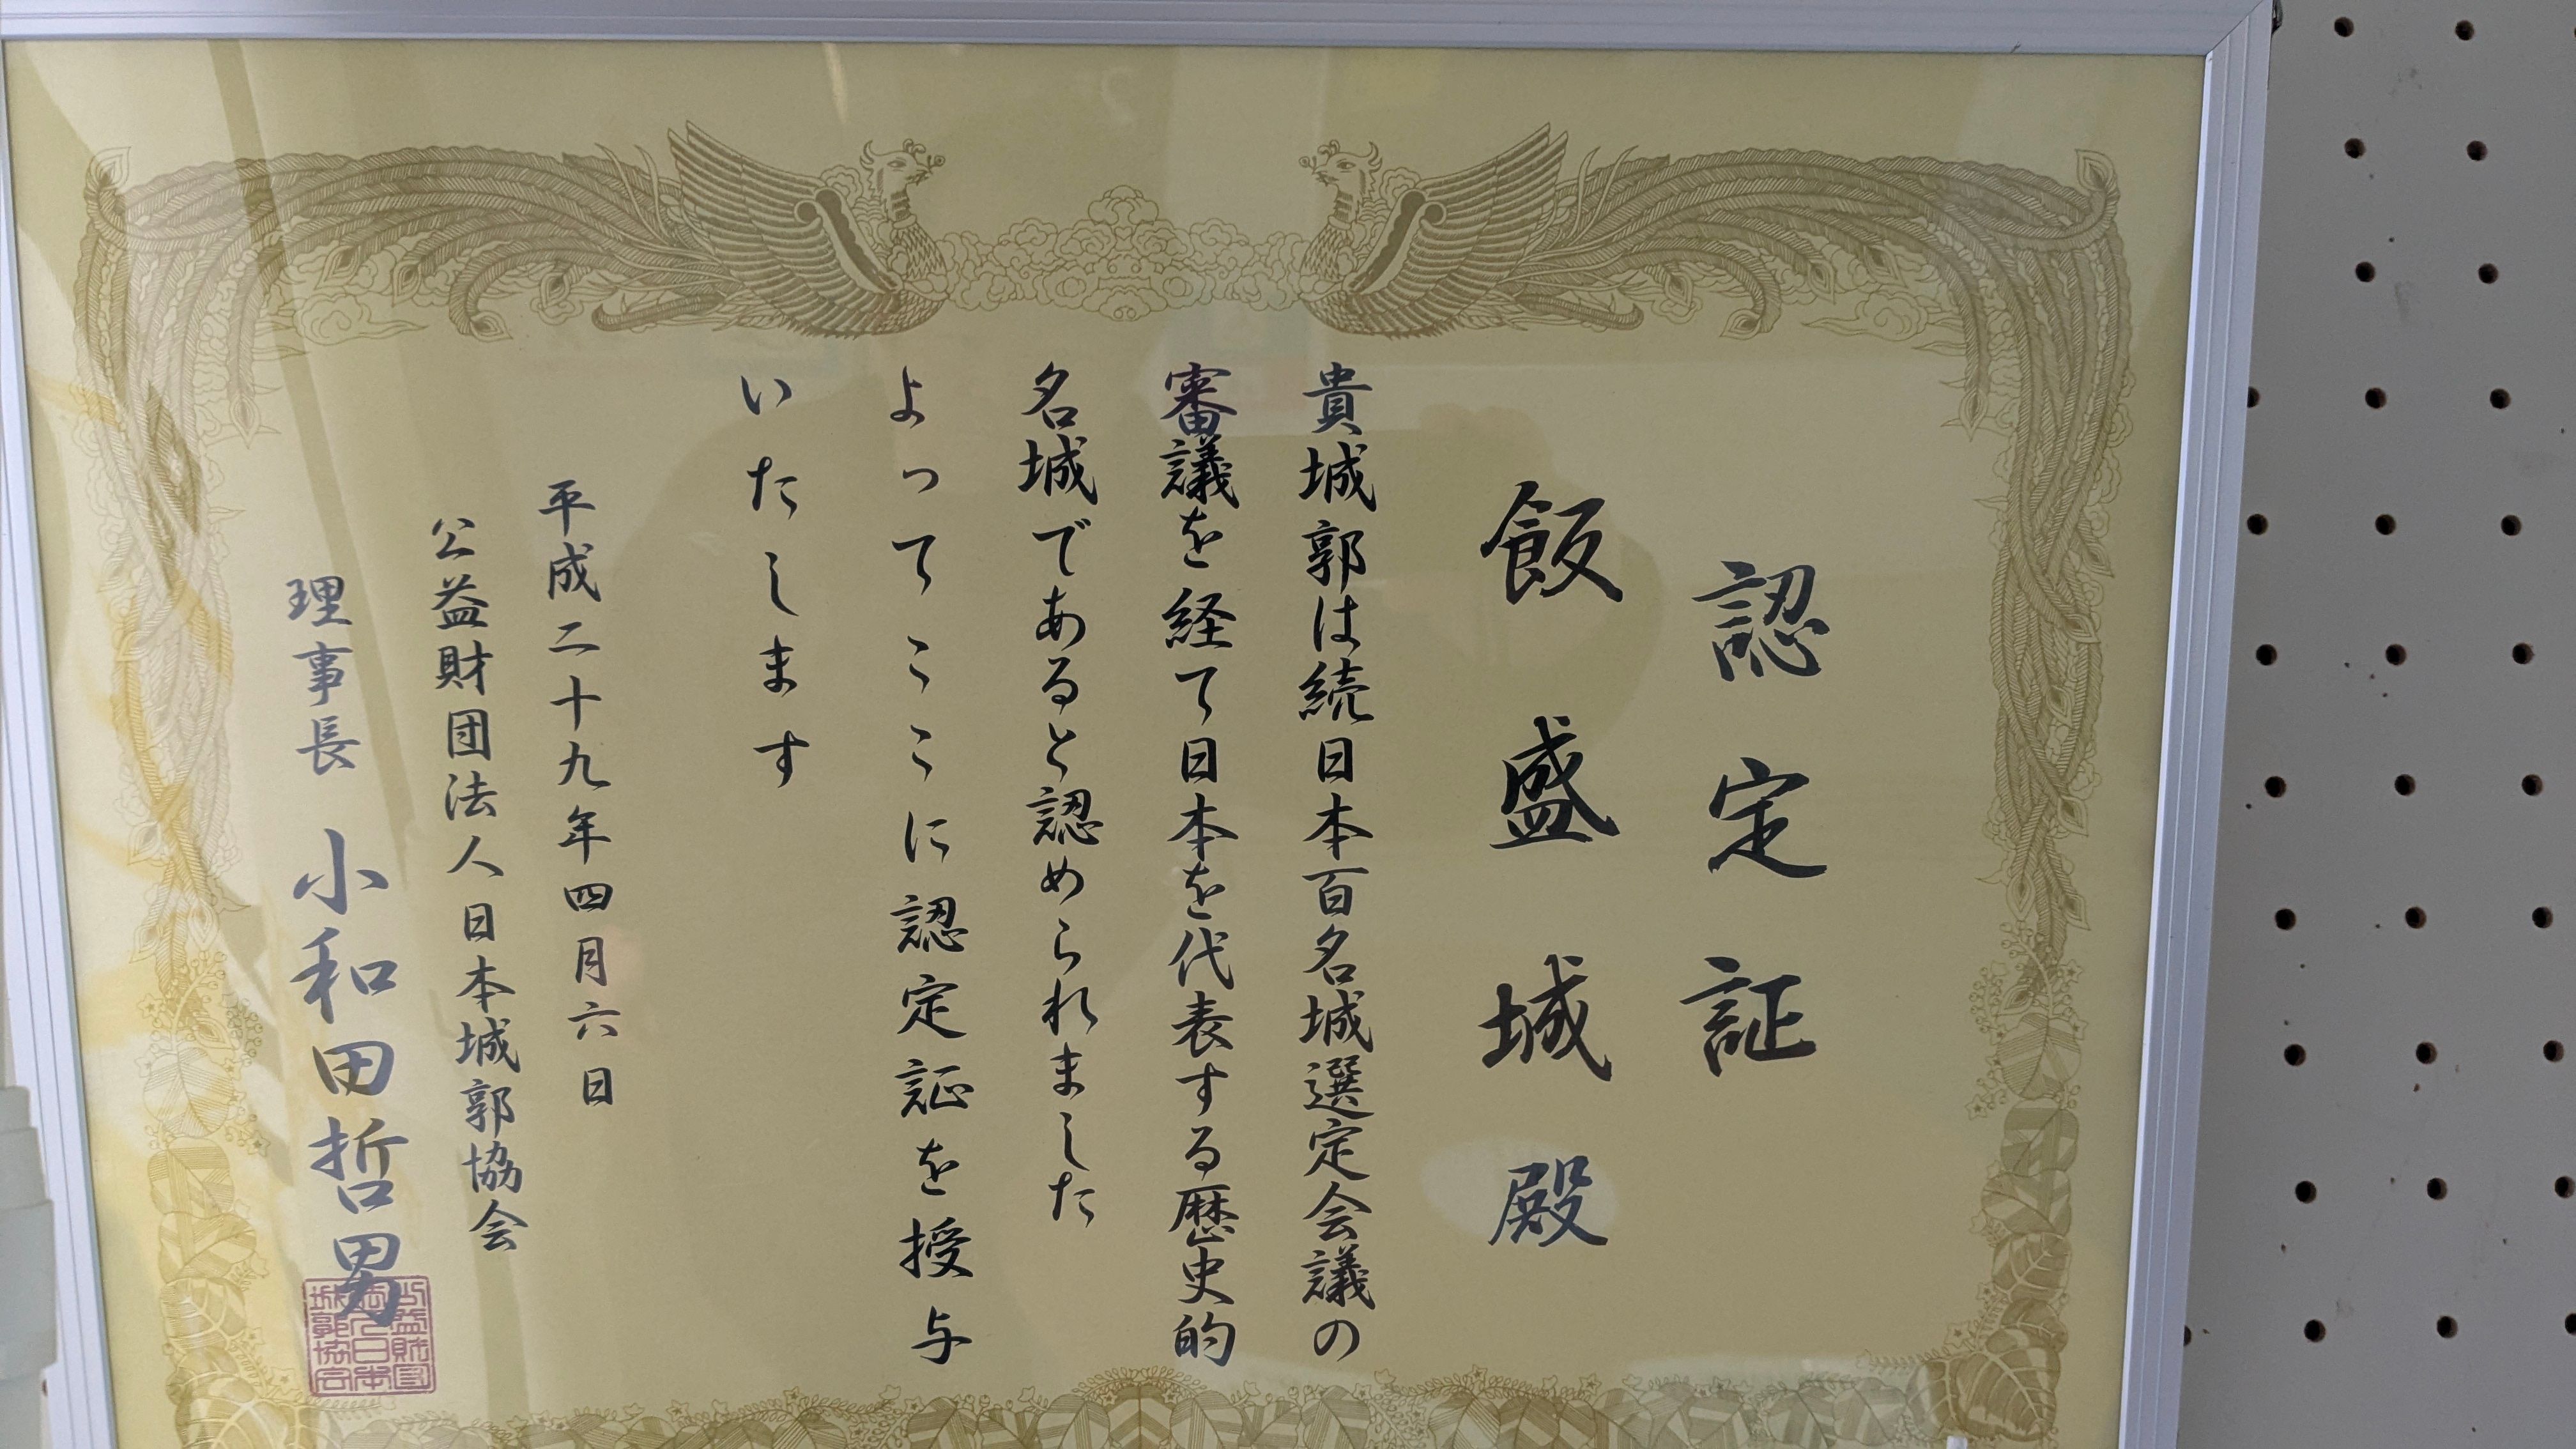 認定証
飯盛城殿
貴城郭は続日本百名城選定会議の
審議を経て日本を代表する歴史的
名城であると認められました
よってここに認定証を授与
いたします
平成二十九年四月六日
公益財団法人日本城郭協会
理事長 小和田哲男
公益財団
法人日本
城郭協会